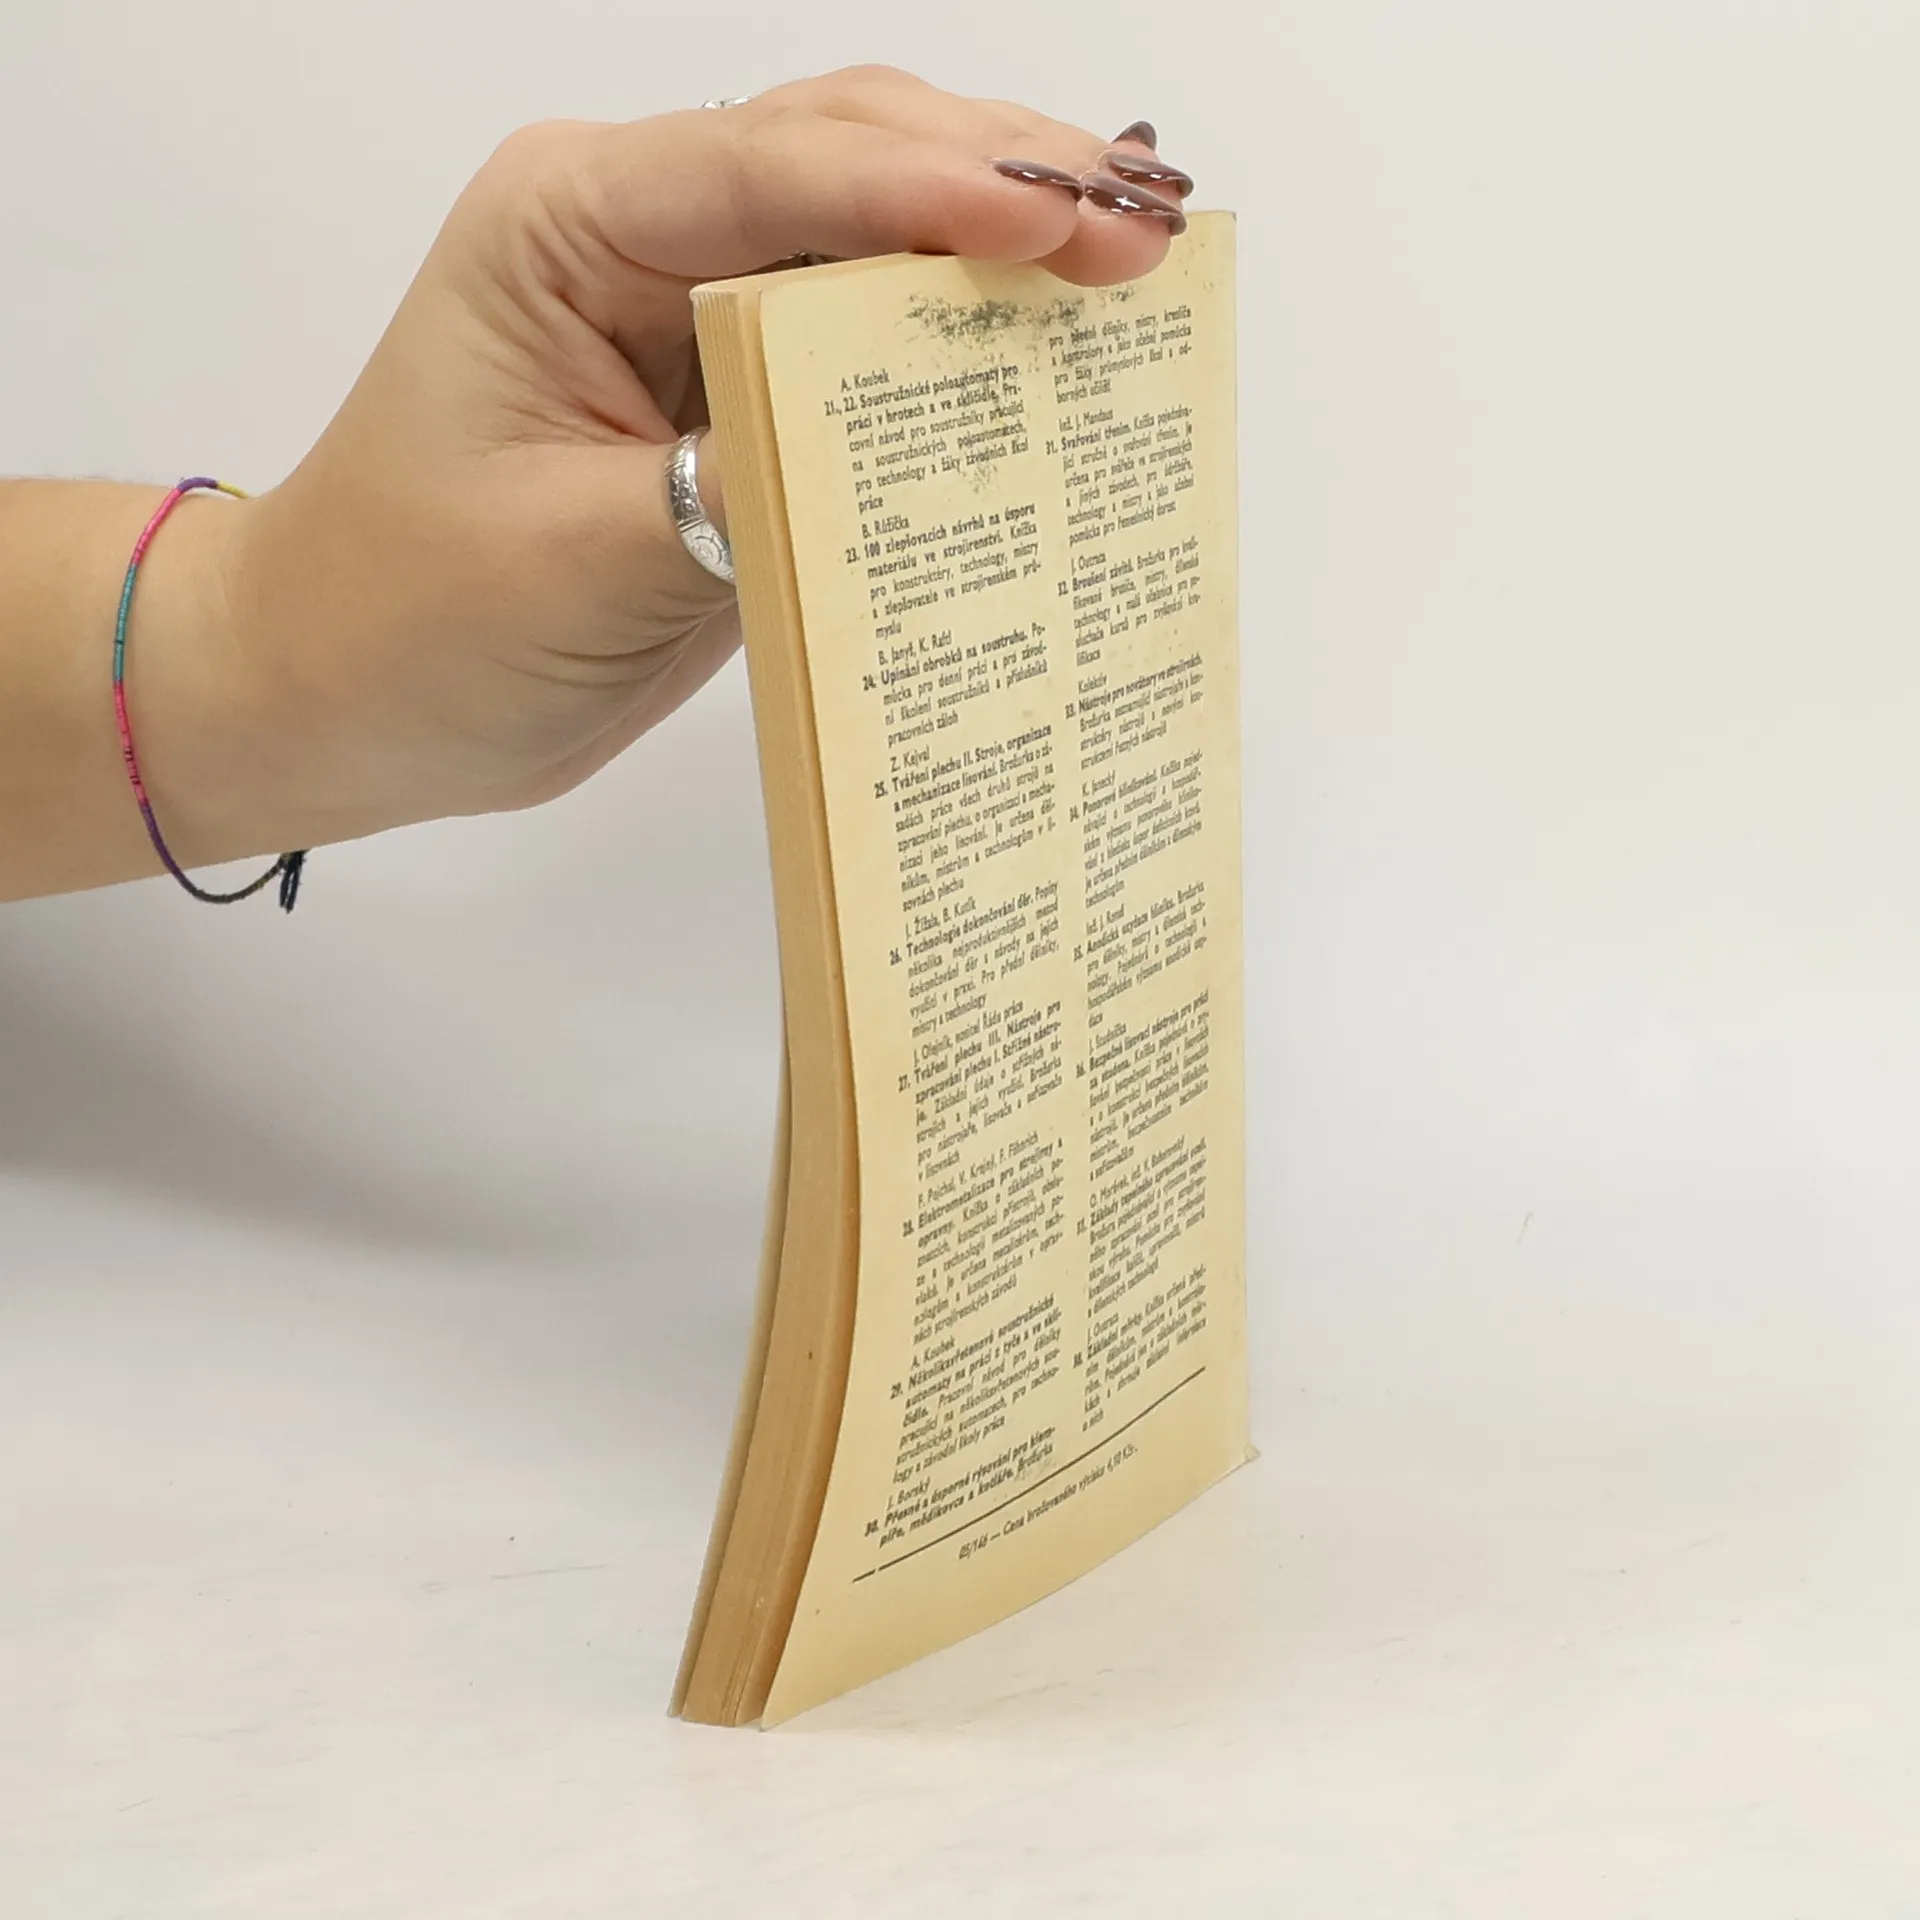 A. Koubek
21., 22. Soustružnické poloautomaty pro
práci v hrotech a ve sklíčidle. Pra-
covní návod pro soustružníky pracující
na soustružnických poloautomatech,
pro technology a žáky závodních škol
práce
B. Růžička
23. 100 zlepšovacích návrhů na úsporu
materiálu ve strojírenství. Knížka
pro konstruktéry, technology, mistry
a zlepšovatele ve strojírenském prů-
myslu
B. Janyš, K. Raftl
24. Upínání obrobků na soustruhu. Po-
můcka pro denní práci a pro závod-
ní školení soustružníků a příslušníků
pracovních záloh
Z. Kejval
25. Tváření plechu II. Stroje, organizace
a mechanizace lisování. Brožurka o zá-
sadách práce všech druhů strojů na
zpracování plechu, o organizaci a mecha-
nizaci jeho lisování. Je určena děl-
níkům, mistrům a technologům v li-
sovnách plechu
J. Žížala, B. Kutík
26. Technologie dokončování děr. Popisy
několika nejproduktivnějších metod
dokončování děr s návody na jejich
využití v praxi. Pro přední dělníky,
mistry a technology
J. Olejník, nositel Řádu práce
27. Tváření plechu III. Nástroje pro
zpracování plechu I. Střižné nástro-
je. Základní údaje o střižných ná-
strojích a jejich využití. Brožurka
pro nástrojaře, lisovače a seřizovače
v lisovnách
F. Pajchal, V. Krajný, F. Föhnrich
28. Elektrometalizace pro strojírny a
opravny. Knížka o základních po-
znatcích, konstrukci přístrojů, obslu-
ze a technologii metalizovaných po-
vlaků. Je určena metalizérům, tech-
nologům a konstruktérům v oprav-
nách strojírenských závodů
A. Koubek
29. Několikavřetenové soustružnické
automaty na práci z tyče a ve sklí-
čidle. Pracovní návod pro dělníky
pracující na několikavřetenových sou-
stružnických automatech, pro techno-
logy a závodní školy práce
J. Borský
30. Přesné a úsporné rýsování pro klem-
píře, mědikovce a kotláře. Brožurka
pro přední dělníky, mistry, kresliče
a kontrolory a jako učební pomůcka
pro žáky průmyslových škol a od-
borných učilišť
Inž. J. Mandaus
31. Svařování třením. Knížka pojednáva-
jící stručně o svařování třením. Je
určena pro svářeče ve strojírenských
a jiných závodech, pro údržbáře,
technology a mistry a jako učební
pomůcka pro řemeslnický dorost
J. Outrata
32. Broušení závitů. Brožurka pro kvali-
fikované brusiče, mistry, dílenské
technology a malá učebnice pro po-
sluchače kursů pro zvyšování kva-
lifikace
Kolektiv
33. Nástroje pro novátory ve strojírnách.
Brožurka seznamující nástrojaře a kon-
struktéry nástrojů s novými kon-
strukcemi řezných nástrojů
K. Janecký
34. Ponorové hliníkování. Knížka pojed-
návající o technologii a hospodář-
ském významu ponorového hliníko-
vání z hlediska úspor deficitních kovů.
Je určena předním dělníkům a dílenským
technologům
Inž. J.
35. Anodická oxydace hliníku. Brožurka
pro dělníky, mistry a dílenské tech-
nology. Pojednává o technologii a
hospodářském významu anodické oxy-
dace
J. Studnička
36. Bezpečné lisovací nástroje pro práci
za studena. Knížka pojednává o zvy-
šování bezpečnosti práce v lisovnách
a o konstrukci bezpečných lisovacích
nástrojů. Je určena předním dělníkům,
mistrům, bezpečnostním technikům
a seřizovačům
O. Morávek, inž. V. Baborovský
37. Základy tepelného zpracování oceli.
Brožura pojednávající o významu tepel-
ného zpracování ocelí pro strojíren-
skou výrobu. Pomůcka pro zvyšování
kvalifikace kaličů, mistrů
a dílenských technologů
J. Outrata
38. Základní měrky. Knížka určená před-
ním dělníkům, mistrům a kontrolo-
rům. Pojednává jen o základních měr-
kách a shrnuje základní informace
o nich
05/146 — Cena brožovaného výtisku 4,10 Kčs.